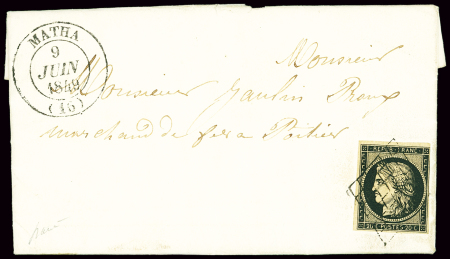 MATHA
9
JUIN
1849
(16)
Monsieur
Monsieur Paulin Proux
marchand de fer a Poitier
REPUB. FRANC.
20 C POSTES 20 C